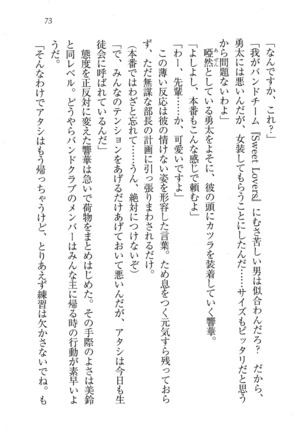 73
「なんですか、これ？」
「我がバンドチーム『Sweet Lovers』にむさ苦しい男は似合わんだろ？　だから、
勇太には悪いんだが、女装してもらうことにしたんだ……サイズもピッタリだと思う
から問題ないわよ」
　唖然としている勇太をよそに、彼の頭にカツラを装着していく響華。
「よしよしよし、本番もこんな感じで頼むよ」
「わー、先輩……か、可愛いですよ」
　この薄い反応は彼の情けない姿を形容した言葉。ため息をつく元気すら残っておら
ず、ただ無謀な部長の計画に引っ張りまわされるだけ。
「本番ではわざと忘れて……うん、絶対につけないぞ」
「で、みんなのテンションをあげるだけあげておいて悪いんだが、アタシは今日も生
徒会に呼ばれているんだ」
　態度を正反対に変えた響華は急いで荷物をまとめはじめる。その手際のよさは美鈴
と同レベル。どうやらバンドクラブのメンバーはみんな主に帰る時の行動が素早いよ
うだ。
「そんなわけでアタシはもう帰っちゃうけど、とりあえず練習は欠かさないでね。も